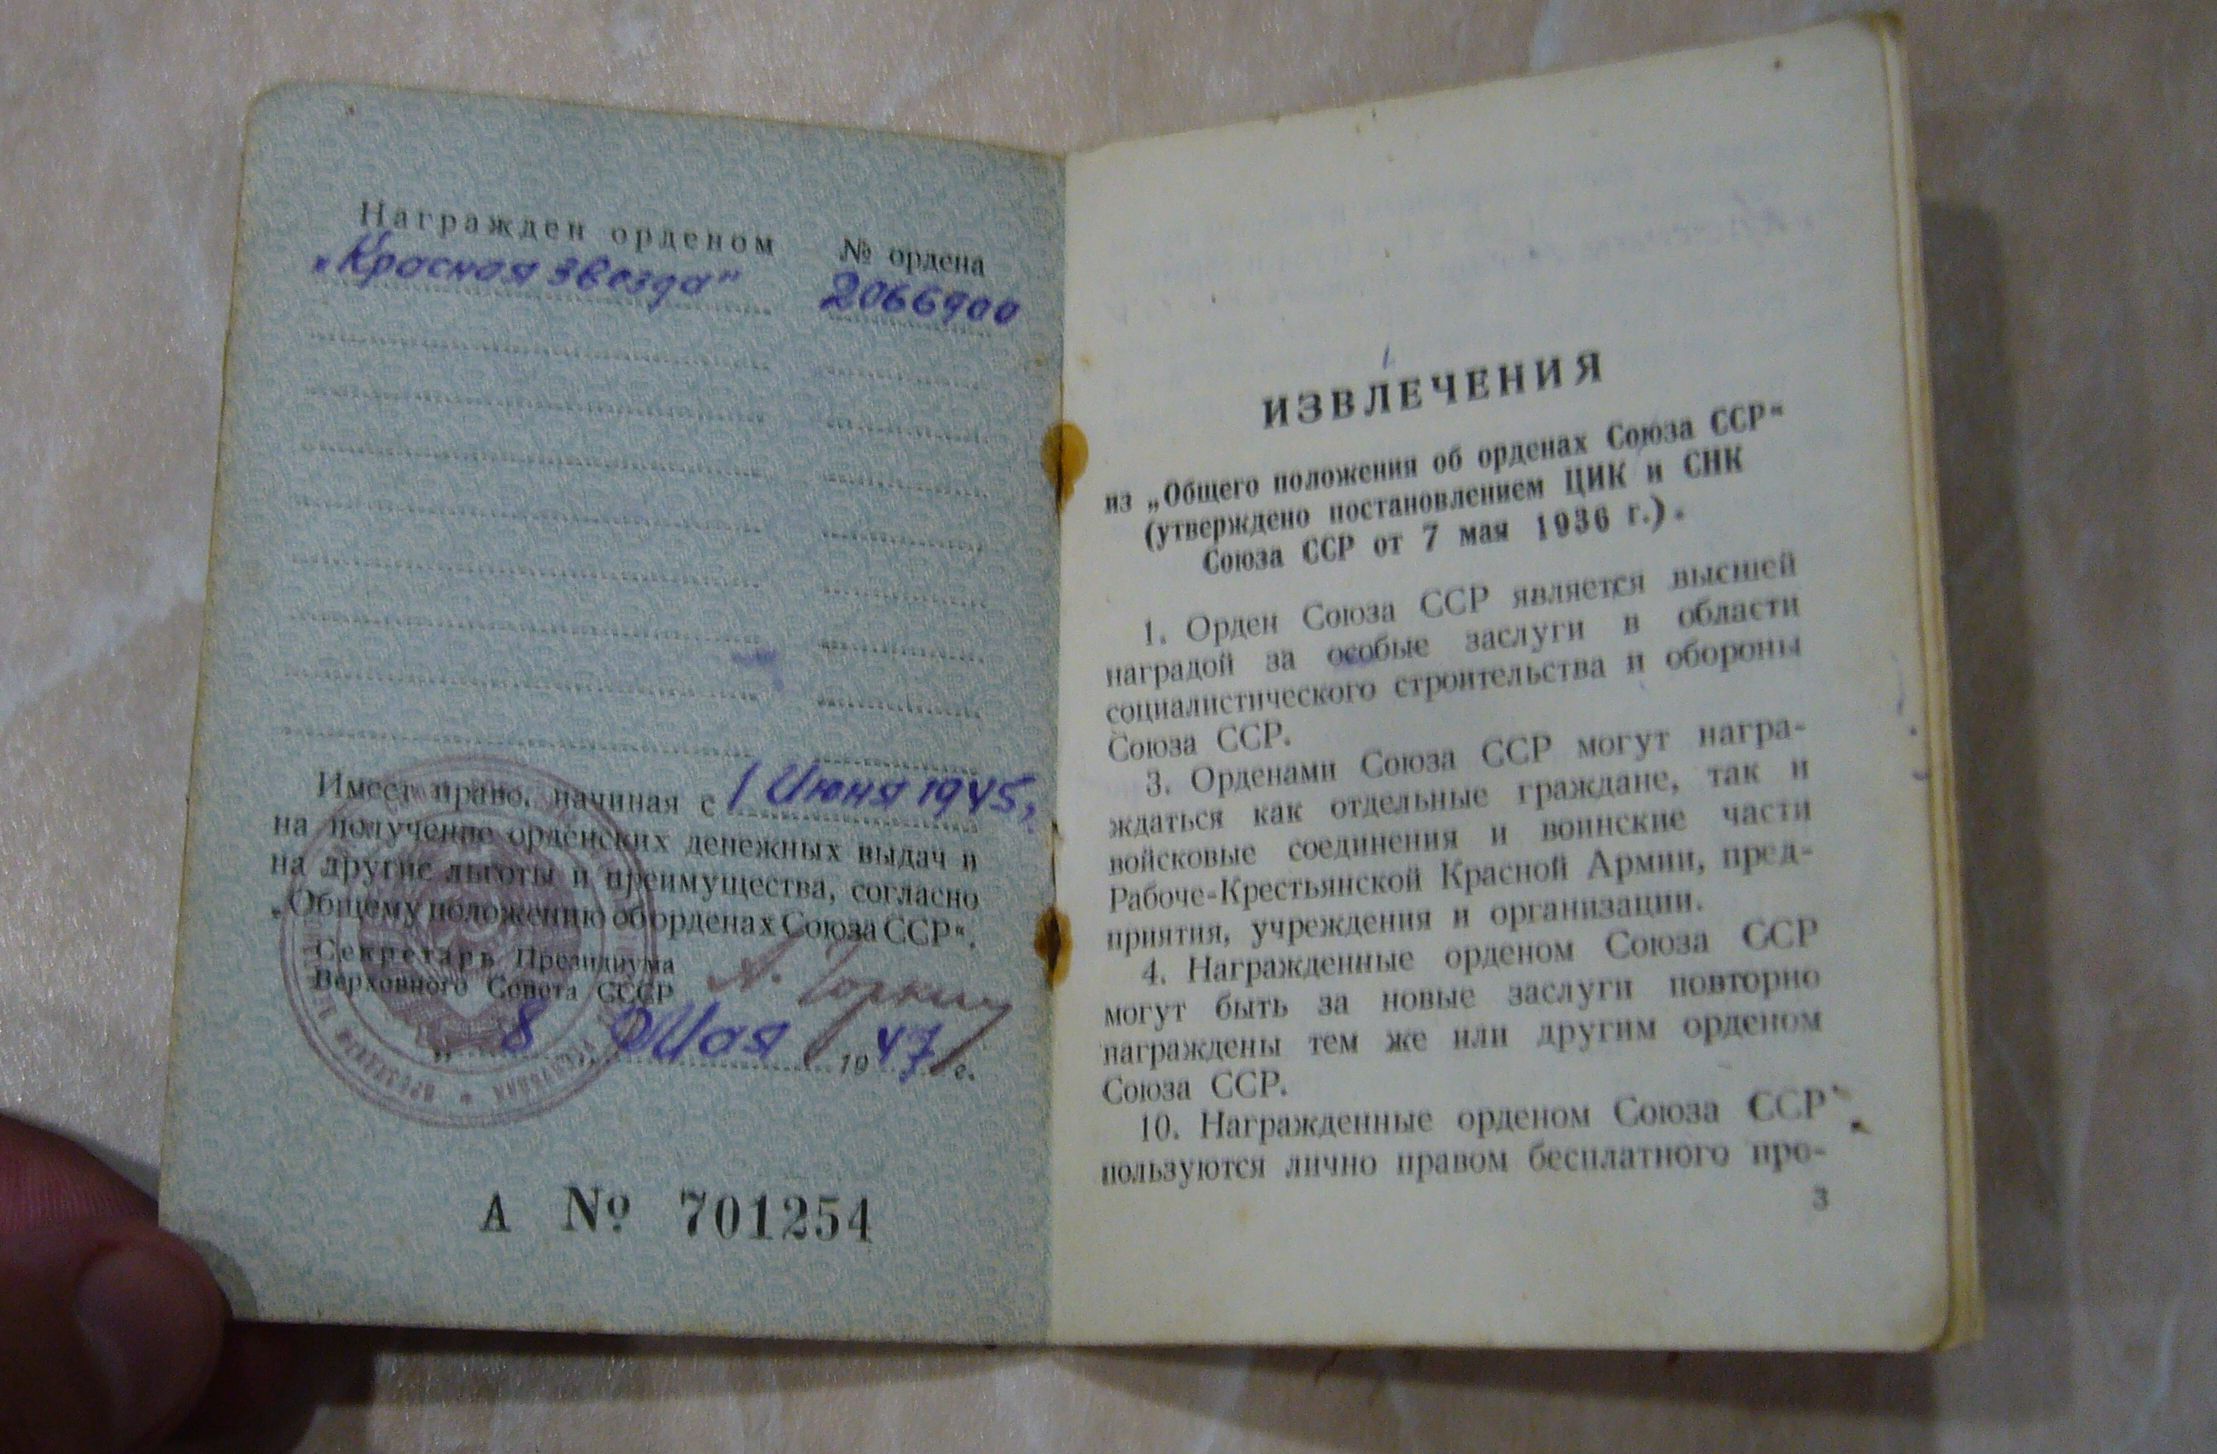 Награжден орденом № ордена
„Красная звезда" 2066900
Имеет право, начиная с 1 Июня 1945,
на получение орденских денежных выдач и
на другие льготы и преимущества, согласно
„Общему положению об орденах Союза ССР“.
Секретарь Президиума
Верховного Совета СССР А. Горкин
„ 8 „ Мая 1947 г.
А № 701254
ИЗВЛЕЧЕНИЯ
из „Общего положения об орденах Союза ССР“
(утверждено постановлением ЦИК и СНК
Союза ССР от 7 мая 1936 г.).
1. Орден Союза ССР является высшей
наградой за особые заслуги в области
социалистического строительства и обороны
Союза ССР.
3. Орденами Союза ССР могут награ-
ждаться как отдельные граждане, так и
войсковые соединения и воинские части
Рабоче-Крестьянской Красной Армии, пред-
приятия, учреждения и организации.
4. Награжденные орденом Союза ССР
могут быть за новые заслуги повторно
награждены тем же или другим орденом
Союза ССР.
10. Награжденные орденом Союза ССР
пользуются лично правом бесплатного про-
3